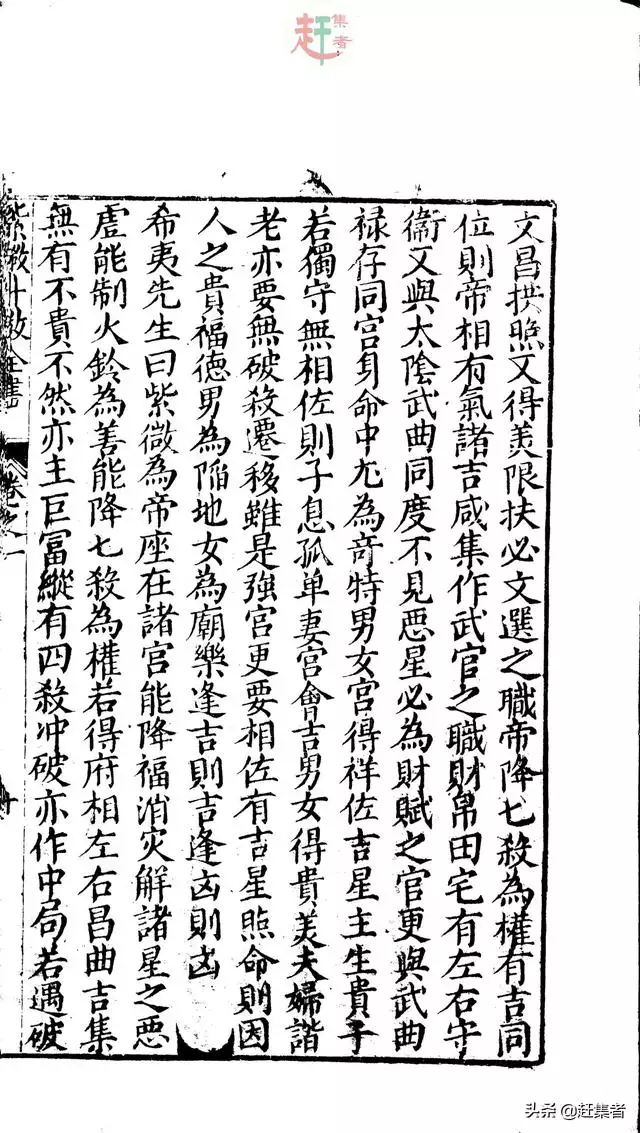 赶集者
文昌拱照又得美限扶必文選之職帝降七殺為權有吉同
位則帝相有氣諸吉咸集作武官之職財帛田宅有左右守
衛又與太陰武曲同度不見惡星必為財賦之官更與武曲
禄存同宮身命中尢為竒特男女宮得祥佐吉星主生貴子
若獨守無相佐則子息孤单妻宮會吉男女得貴美夫婦諧
老亦要無破殺遷移雖是強宮更要相佐有吉星照命則因
人之貴福德男為陥地女為廟樂逢吉則吉逢凶則凶
希夷先生曰紫微為帝座在諸宮能降福消灾解諸星之惡
虚能制火鈴為善能降七殺為權若得府相左右昌曲吉集
無有不貴不然亦主巨冨縱有四殺冲破亦作中局若遇破
紫微斗数全書 卷之一
头条 @赶集者